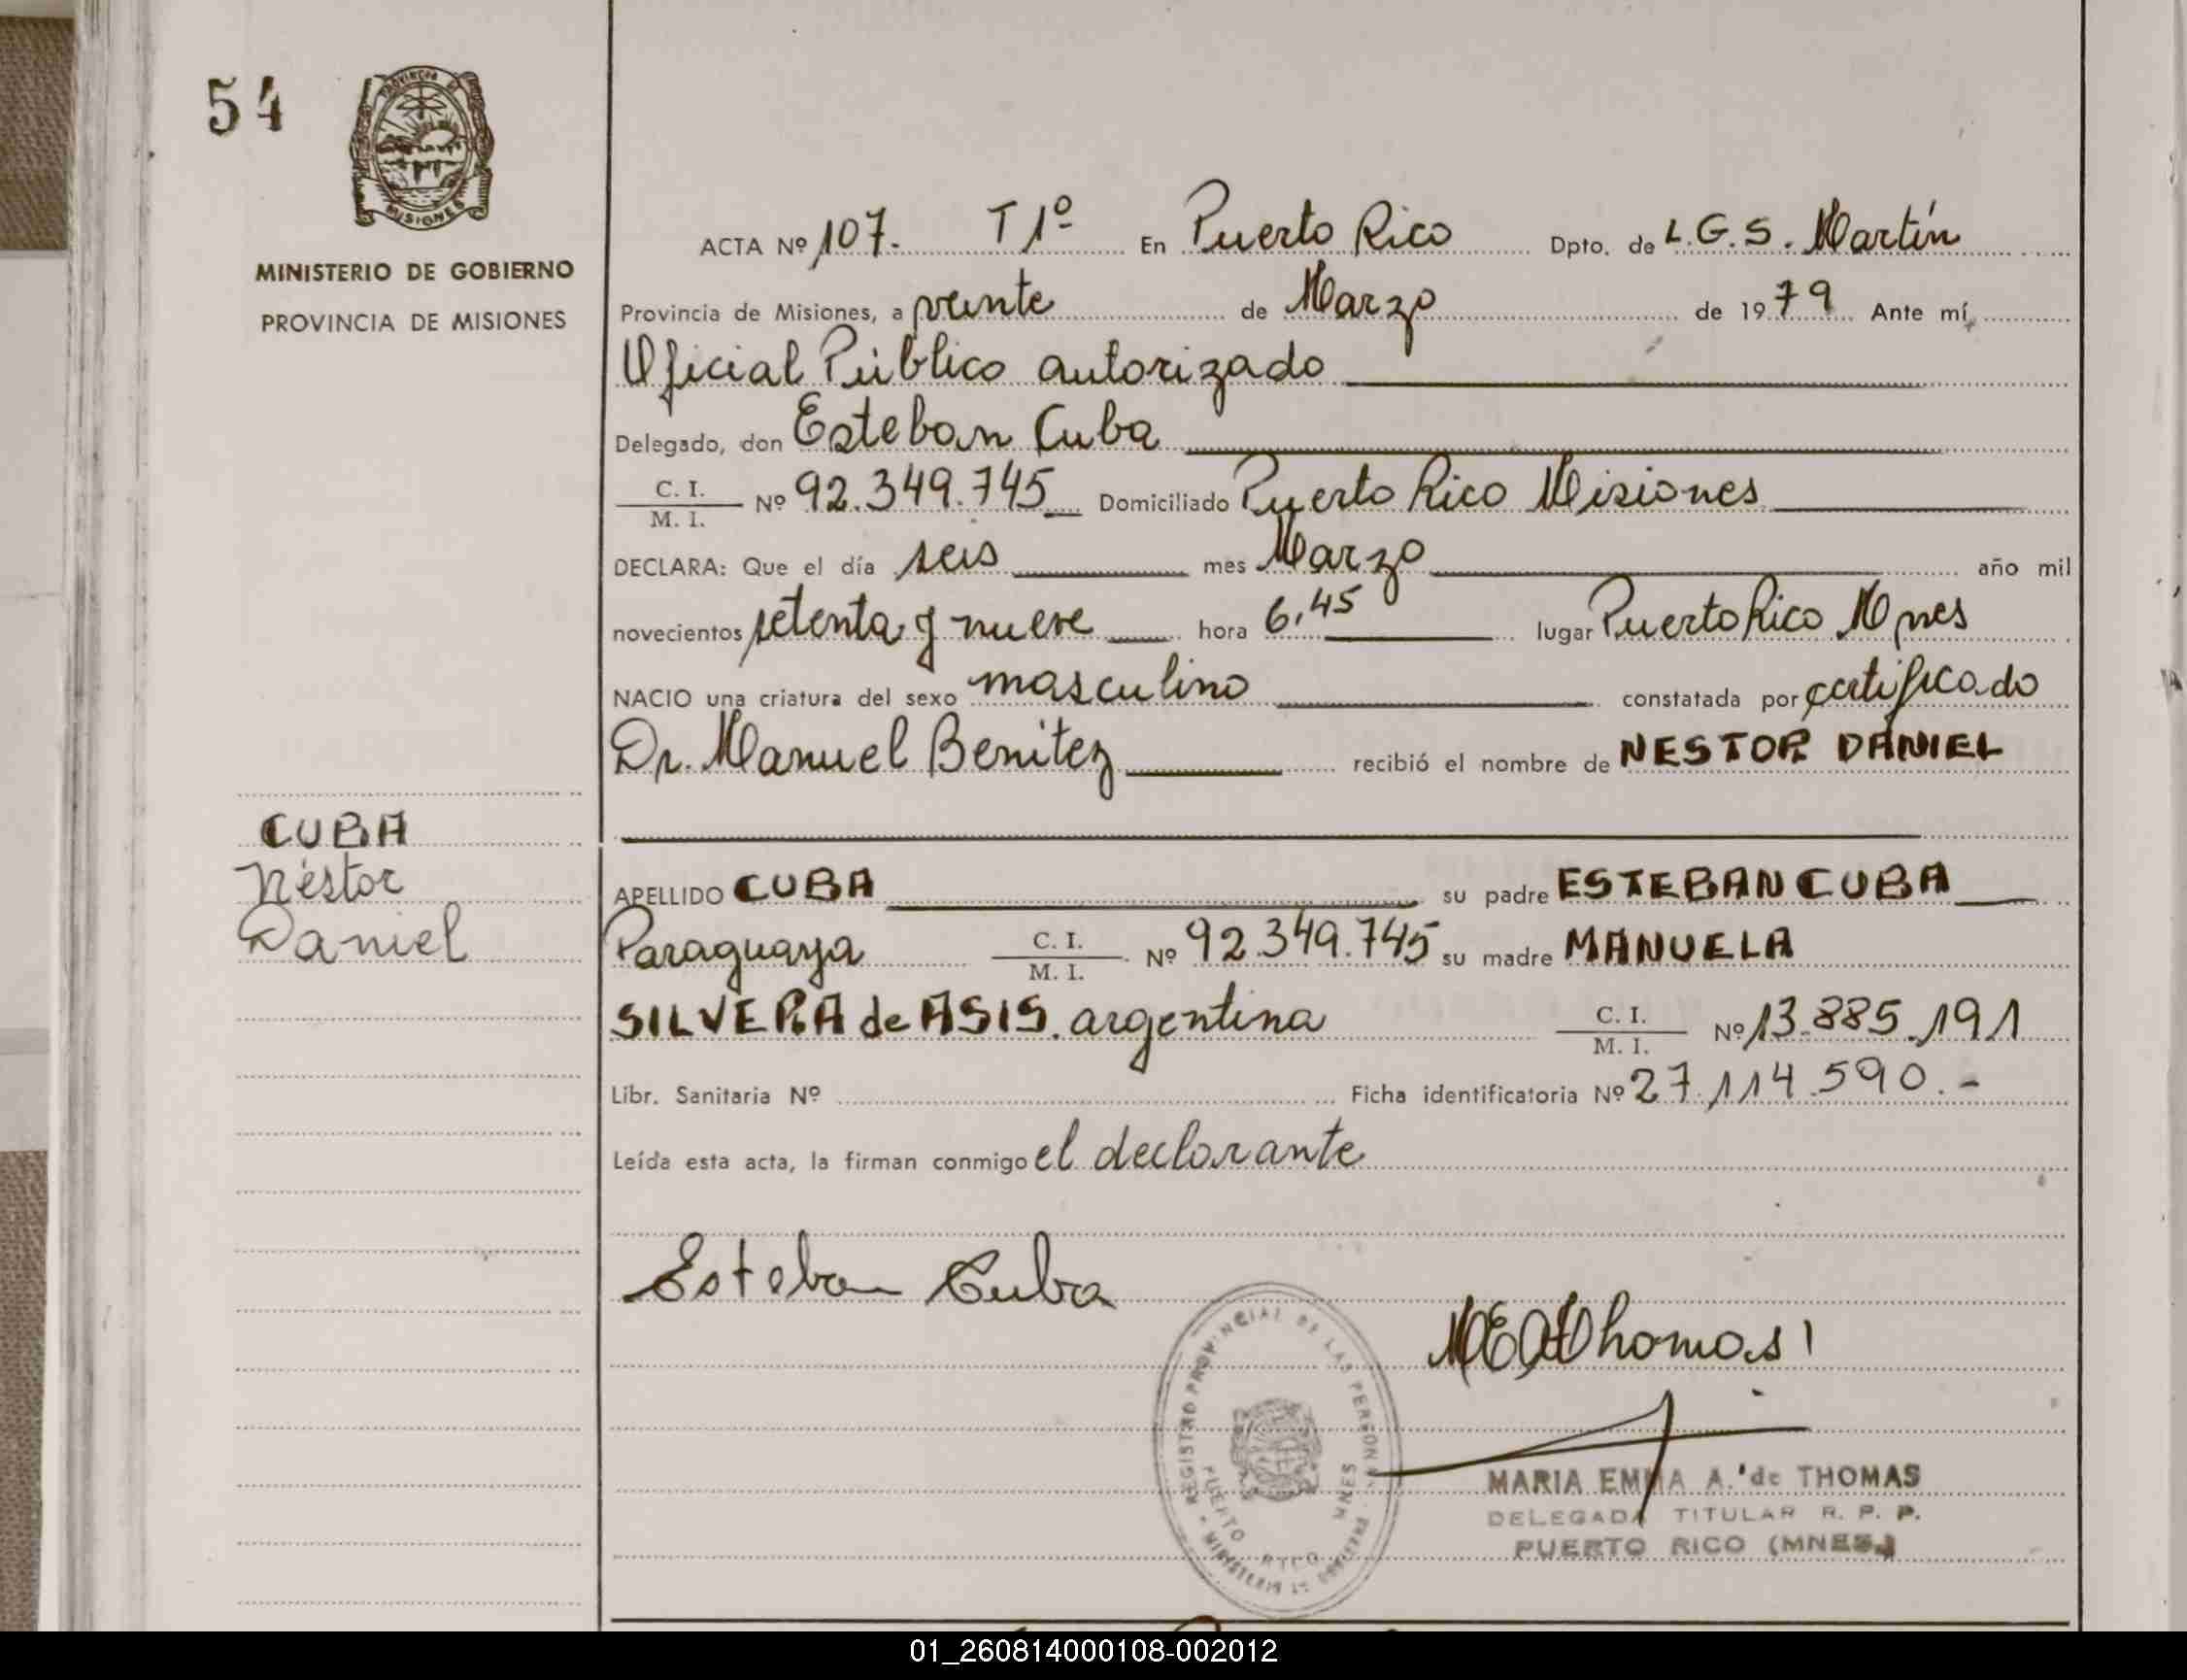 54
PROVINCIA DE
MISIONES
MINISTERIO DE GOBIERNO
PROVINCIA DE MISIONES
ACTA Nº 107. T 1º En Puerto Rico Dpto. de L.G.S. Martín
Provincia de Misiones, a veinte de Marzo de 1979 Ante mí,
Oficial Público autorizado
Delegado, don Esteban Cuba
C. I.
M. I. Nº 92.349.745 Domiciliado Puerto Rico Misiones
DECLARA: Que el día seis mes Marzo año mil
novecientos setenta y nueve hora 6,45 lugar Puerto Rico Mnes
NACIO una criatura del sexo masculino constatada por certificado
Dr. Manuel Benitez recibió el nombre de NESTOR DANIEL
CUBA
Néstor
Daniel
APELLIDO CUBA su padre ESTEBAN CUBA
Paraguaya C. I.
M. I. Nº 92.349.745 su madre MANUELA
SILVERA de ASIS. argentina C. I.
M. I. Nº 13.885.191
Libr. Sanitaria Nº Ficha identificatoria Nº 27.114.590.-
Leída esta acta, la firman conmigo el declarante
Esteban Cuba
MEAdThomas
REGISTRO PROVINCIAL DE LAS PERSONAS
PUERTO RICO MNES
MARIA EMMA A. de THOMAS
DELEGADA TITULAR R. P. P.
PUERTO RICO (MNES.)
01_260814000108-002012